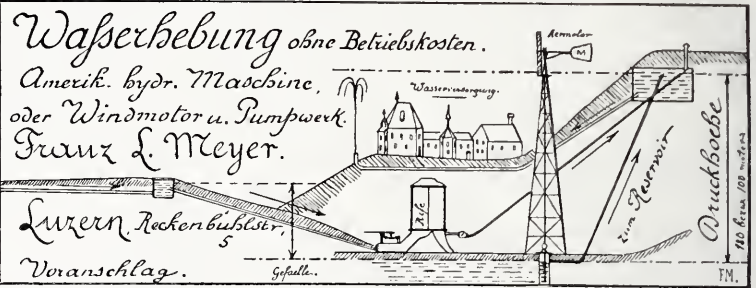 Waſserhebung ohne Betriebskosten.
Amerik. hydr. Maschine,
oder Windmotor u. Pumpwerk.
Franz L. Meyer.
Luzern, Reckenbühlstr,
5
Voranschlag.
Gefaelle.
Wasserversorgung.
Aermotor
M
zum Reservoir
Druckhoehe
FM.